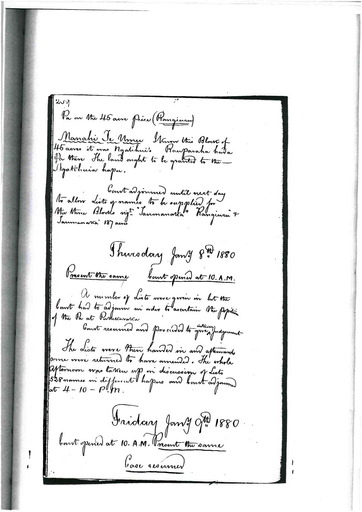 Pa on the 45 acre piece (Rangiuru)
Manahi Te Umu I know this Block of
45 acres it was Ngatihuia's Rauparaha had a
Pa there The land ought to be granted to the
Ngatihuia hapu.
Court adjourned until next day
to allow Lists of names to be supplied for
the three Blocks
Thursday Jany 8th 1880
Present the same Court opened at 10. A.M.
A number of Lists were given in but the
Court had to adjourn in order to ascertain the
of the Pa at
Court resumed and proceeded to give Judgement
The Lists were then handed in and afterwards
some were returned to have amended. The whole
afternoon was taken up in discussion of Lists
528 names in different hapus and Court adjourned
at 4-10-P.M.
Friday Jany 9th 1880
Court opened at 10. A.M. Present the same
Case resumed